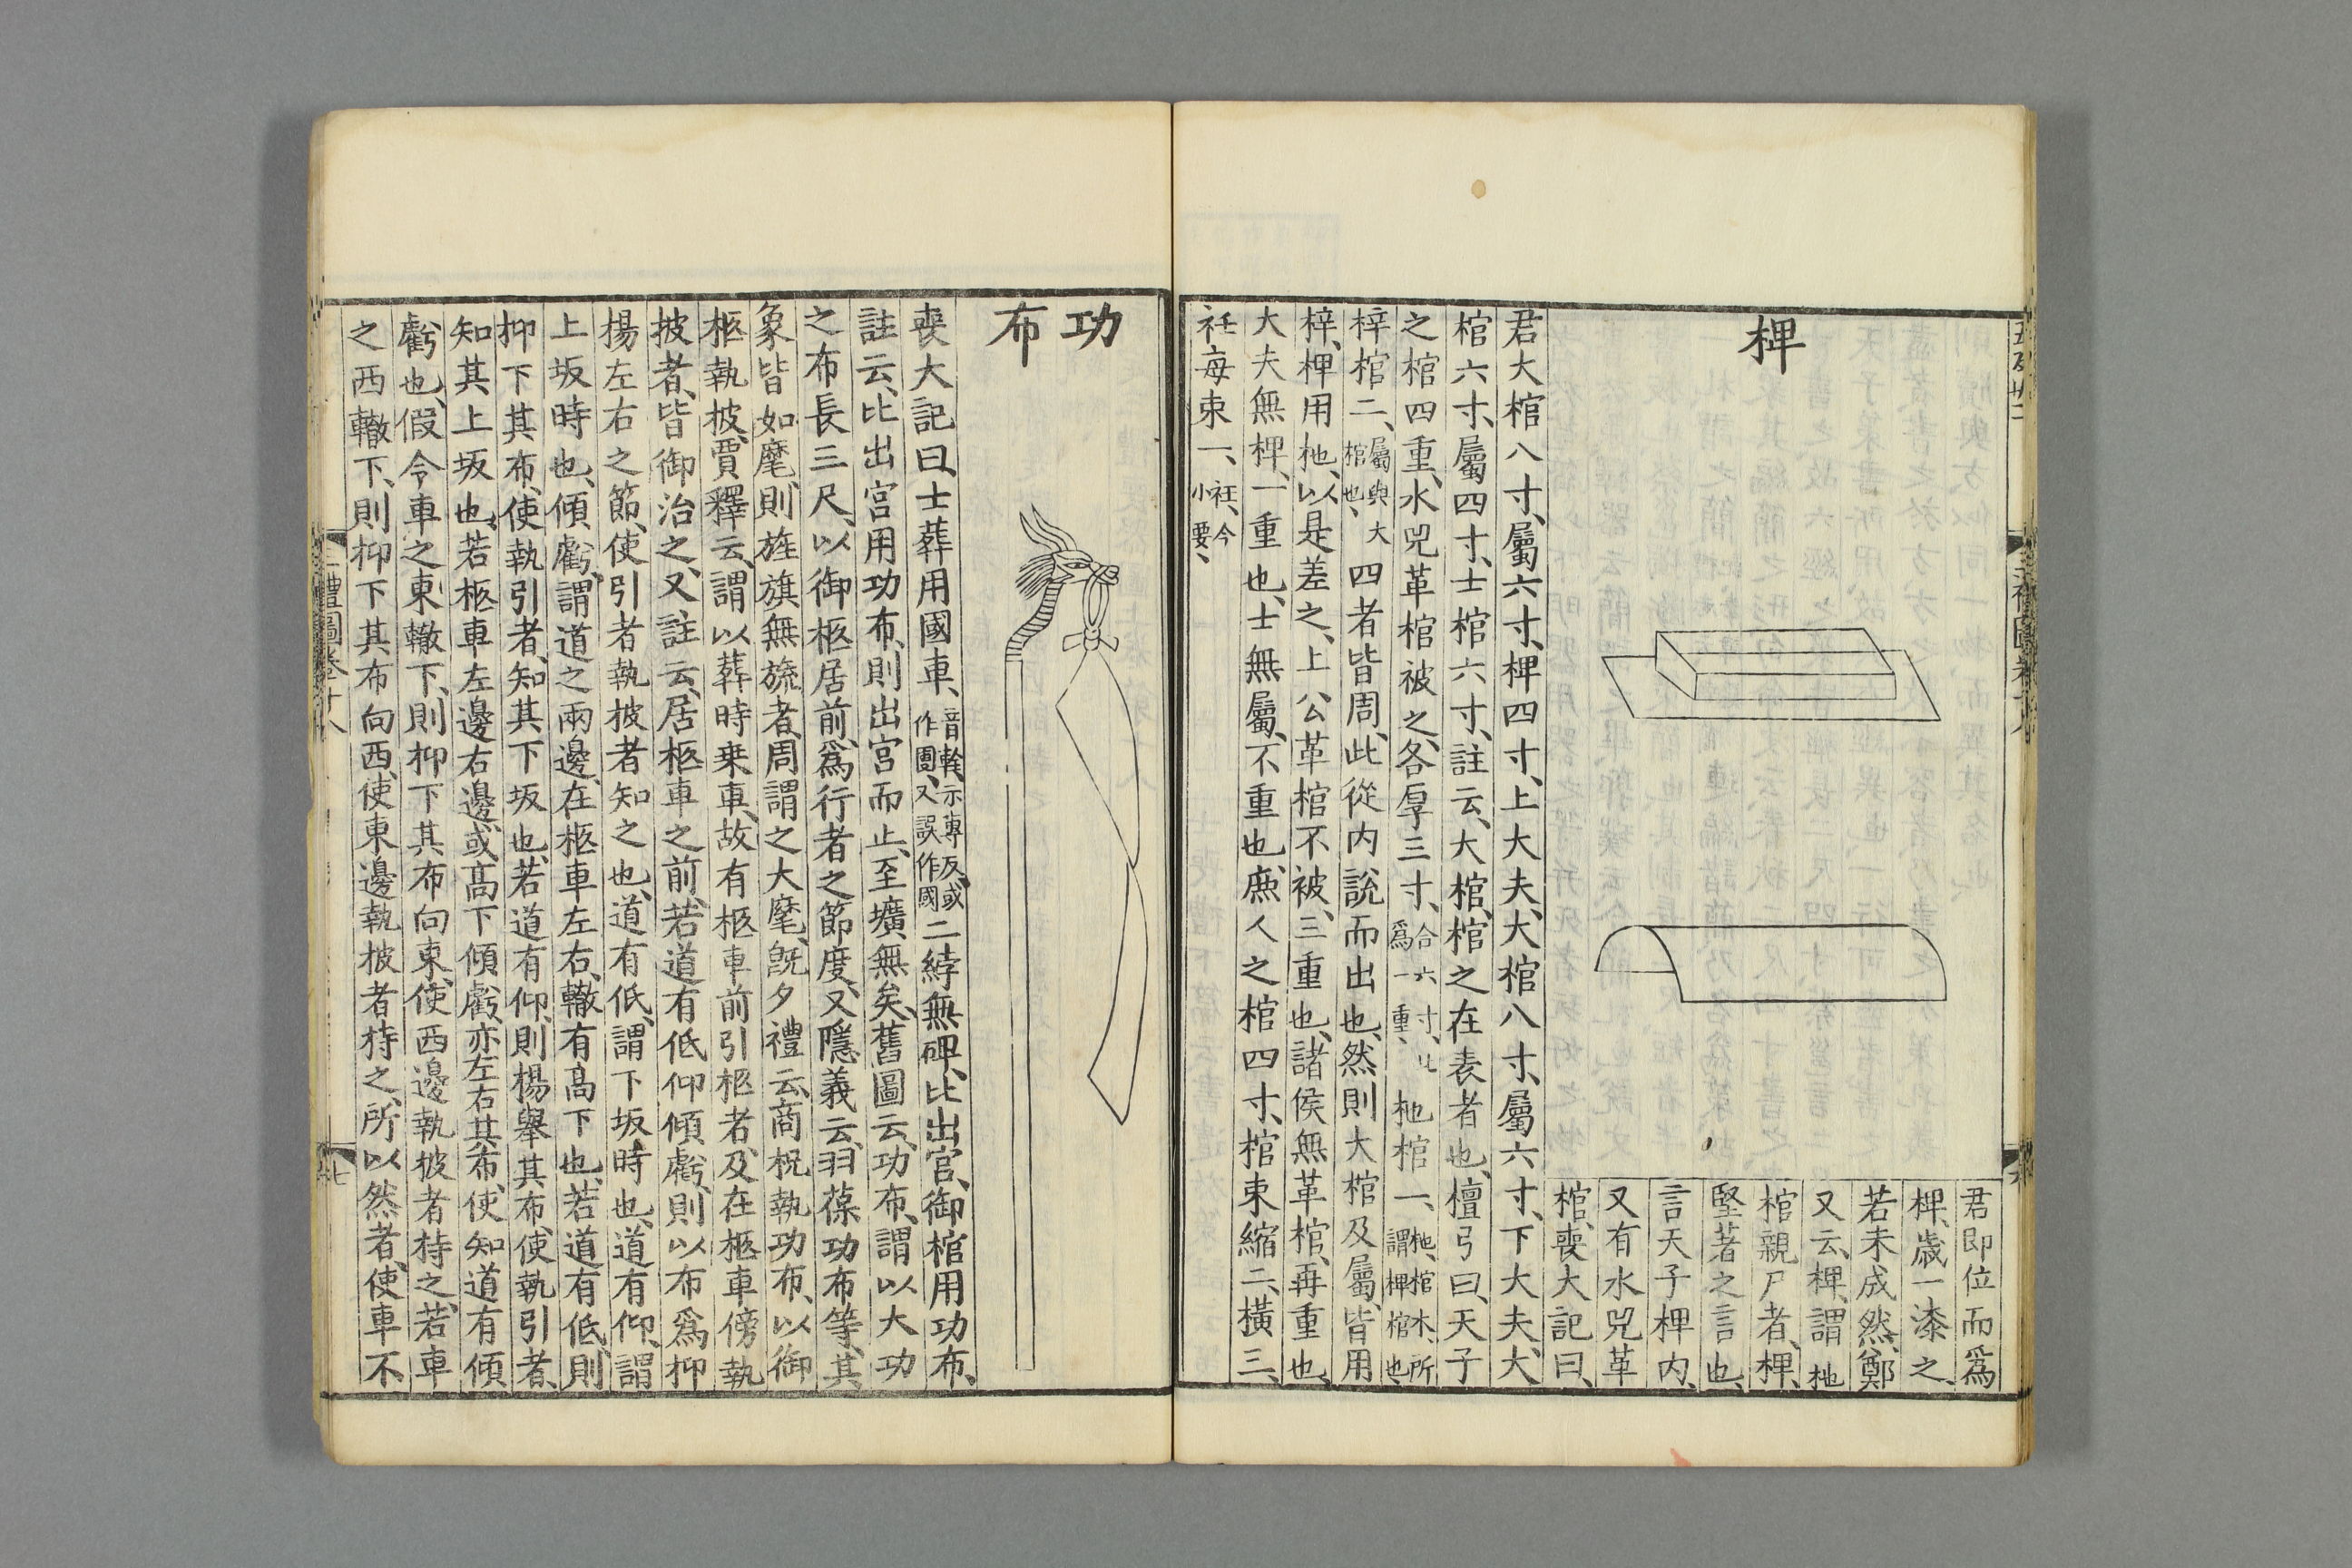 椑
君即位而爲
椑歳一漆之
若未成然鄭
又云椑謂杝
棺親尸者椑
堅著之言也
言天子椑内
又有水兕革
棺喪大記曰
君大棺八寸屬六寸椑四寸上大夫大棺八寸屬六寸下大夫大
棺六寸屬四寸士棺六寸註云大棺棺之在表者也檀弓曰天子
之棺四重水兕革棺被之各厚三寸合六寸此爲一重杝棺一杝棺木所謂椑棺也
梓棺二屬與大棺也四者皆周此從内說而出也然則大棺及屬皆用
梓椑用杝以是差之上公革棺不被三重也諸侯無革棺再重也
大夫無椑一重也士無屬不重也庶人之棺四寸棺束縮二橫三
衽每束一衽今小要
功布
喪大記曰士葬用國車音輇示專反或作團又誤作國二綍無碑比出宫御棺用功布
註云比出宮用功布則出宮而止至壙無矣舊圖云功布謂以大功
之布長三尺以御柩居前爲行者之節度又隱義云羽葆功布等其
象皆如麾則旌旗無旒者周謂之大麾旣夕禮云商祝執功布以御
柩執披賈釋云謂以葬時乗車故有柩車前引柩者及在柩車傍執
披者皆御治之又註云居柩車之前若道有低仰傾虧則以布爲抑
揚左右之節使引者執披者知之也道有低謂下坂時也道有仰謂
上坂時也傾虧謂道之兩邊在柩車左右轍有高下也若道有低則
抑下其布使執引者知其下坂也若道有仰則楊舉其布使執引者
知其上坂也若柩車左邊右邊或高下傾虧亦左右其布使知道有傾
虧也假令車之東轍下則抑下其布向東使西邊執披者持之若車
之西轍下則抑下其布向西使東邊執披者持之所以然者使車不
三禮圖卷十八